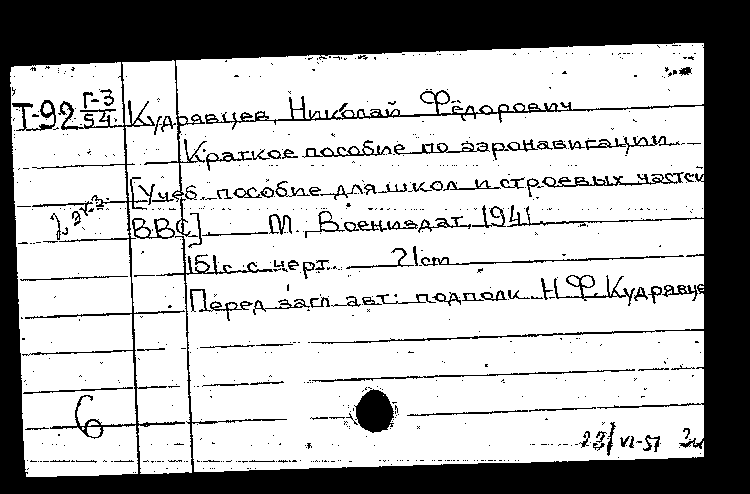 Т-92 Г-3/54. Кудрявцев, Николай Фёдорович
Краткое пособие по аэронавигации.
[Учеб. пособие для школ и строевых частей
2 экз.
ВВС]. М., Воениздат, 1941.
151 с. с черт. 21 cm
Перед загл. авт: подполк. Н. Ф. Кудрявце
6
23/VI-51